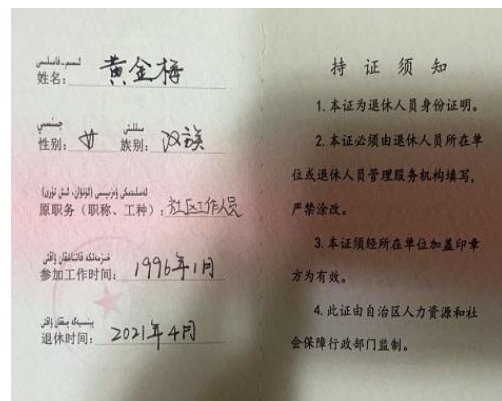 ئىسىم-فامىلىسى
姓名：黄金梅
جىنسىي
性别：女
مىللىتى
族别：汉族
原职务（职称、工种）：社区工作人员
参加工作时间：1996年1月
退休时间：2021年4月
持证须知
1.本证为退休人员身份证明。
2.本证必须由退休人员所在单
位或退休人员管理服务机构填写，
严禁涂改。
3.本证须经所在单位加盖印章
方为有效。
4.此证由自治区人力资源和社
会保障行政部门监制。